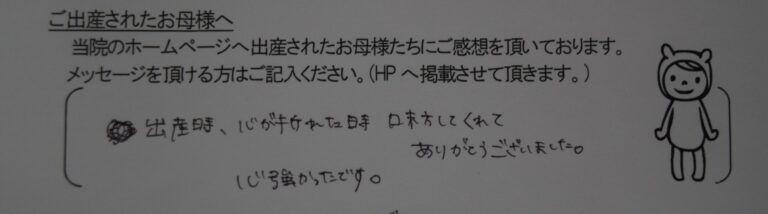 ご出産されたお母様へ
当院のホームページへ出産されたお母様たちにご感想を頂いております。
メッセージを頂ける方はご記入ください。(HPへ掲載させて頂きます。)
出産時、心が折れた時 味方してくれて
ありがとうございました。
心強かったです。